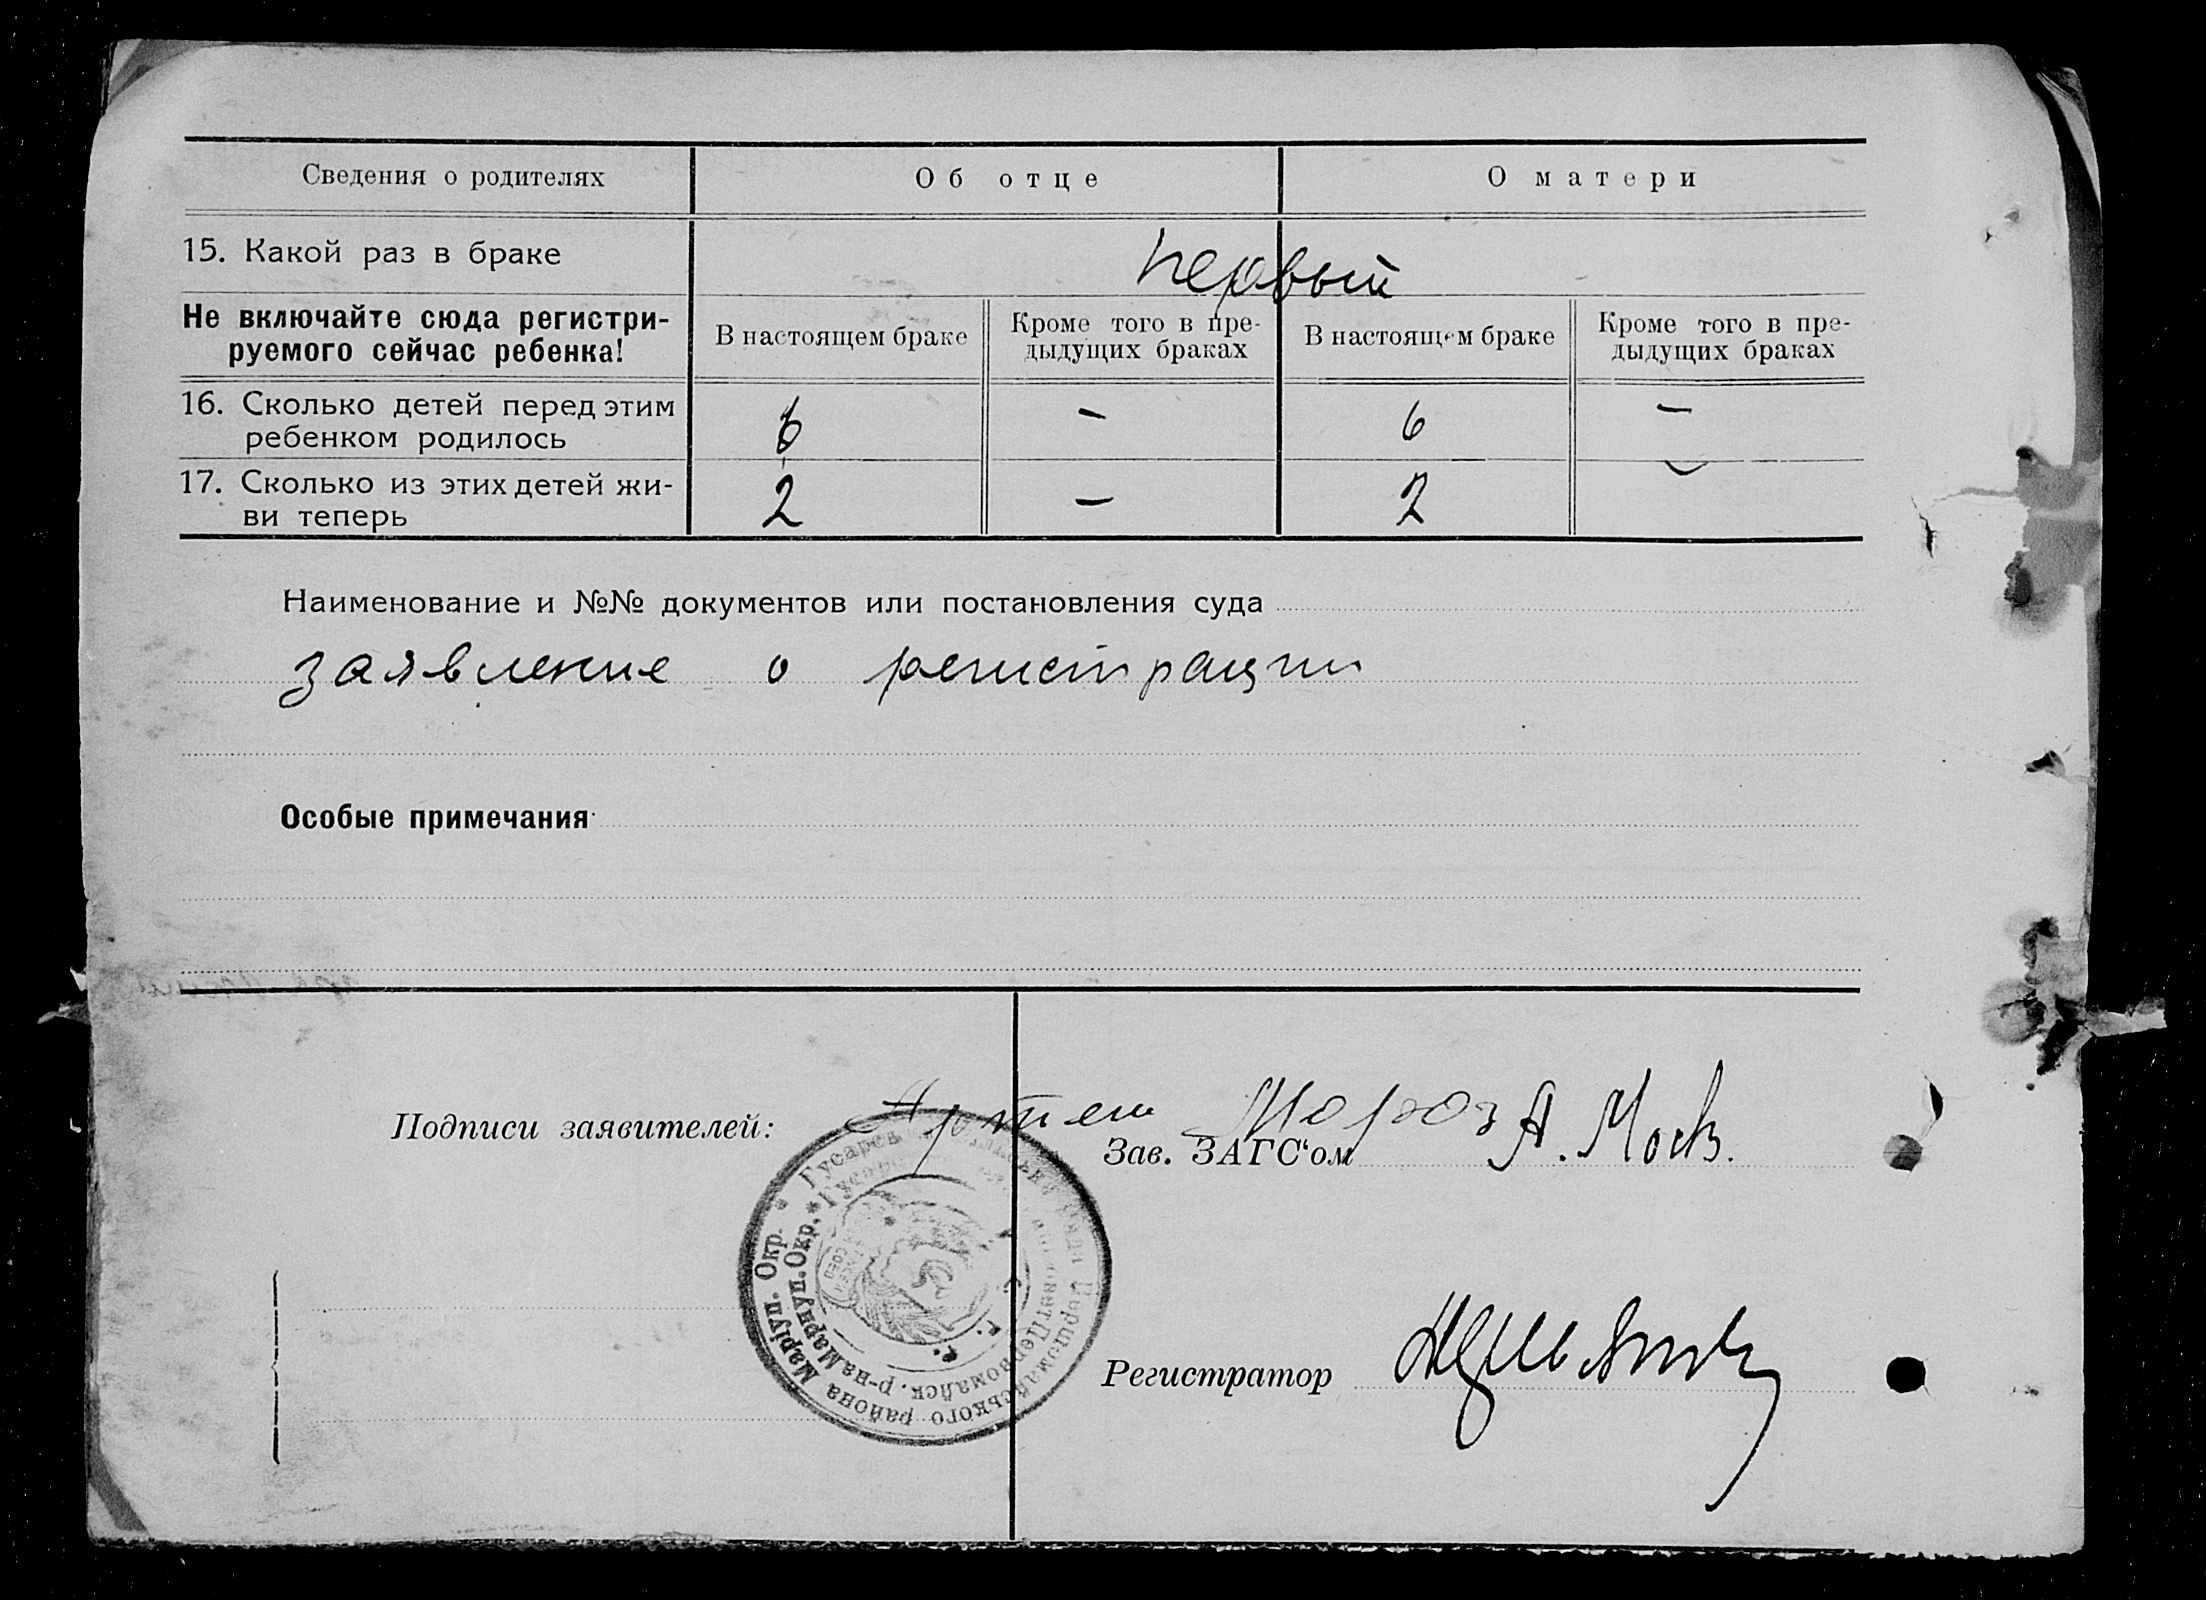 Сведения о родителях
Об отце
О матери
15. Какой раз в браке
первый
Не включайте сюда регистри-
руемого сейчас ребенка!
В настоящем браке
Кроме того в пре-
дыдущих браках
В настоящем браке
Кроме того в пре-
дыдущих браках
16. Сколько детей перед этим
ребенком родилось
6 – 6 –
17. Сколько из этих детей жи-
ви теперь
2 – 2
Наименование и №№ документов или постановления суда
заявление о регистрации
Особые примечания
Подписи заявителей:
Артем Мороз
Зав. ЗАГС‘ом
Регистратор
Першомайського района Маріуп. Окр. * Гусарів
Первомайск. р-на Мариуп. Окр. *